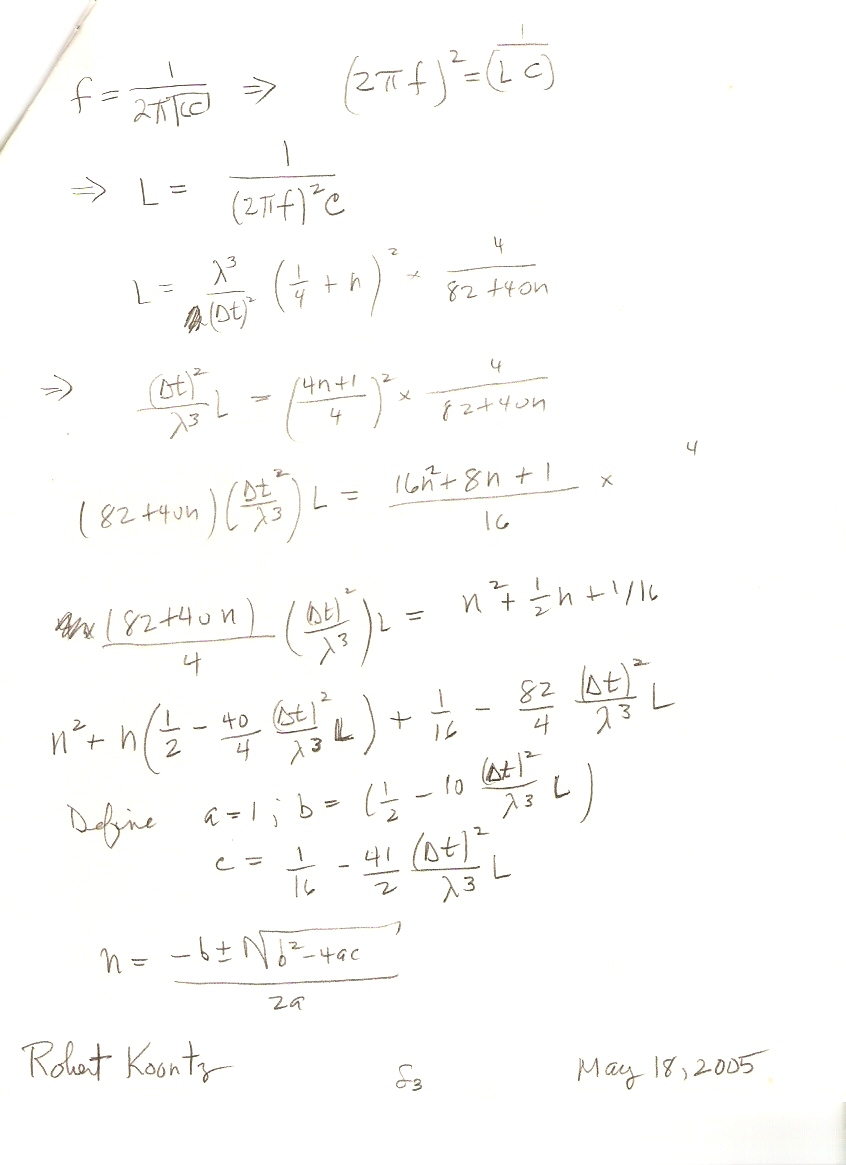 f = 1/(2π√(LC)) ⇒ (2πf)² = 1/(LC)
⇒ L = 1/((2πf)²C)
L = λ³/(Δt)² (1/4 + n)² × 4/(82+40n)
⇒ (Δt)²/λ³ L = ((4n+1)/4)² × 4/(82+40n)
(82+40n)(Δt²/λ³) L = (16n²+8n+1)/16 × 4
(82+40n)/4 ((Δt)²/λ³) L = n² + 1/2 n + 1/16
n² + n(1/2 - 40/4 (Δt)²/λ³ L) + 1/16 - 82/4 (Δt)²/λ³ L
Define a=1; b = (1/2 - 10 (Δt)²/λ³ L)
c = 1/16 - 41/2 (Δt)²/λ³ L
n = (-b ± √(b²-4ac))/2a
Robert Koontz 3 May 18, 2005